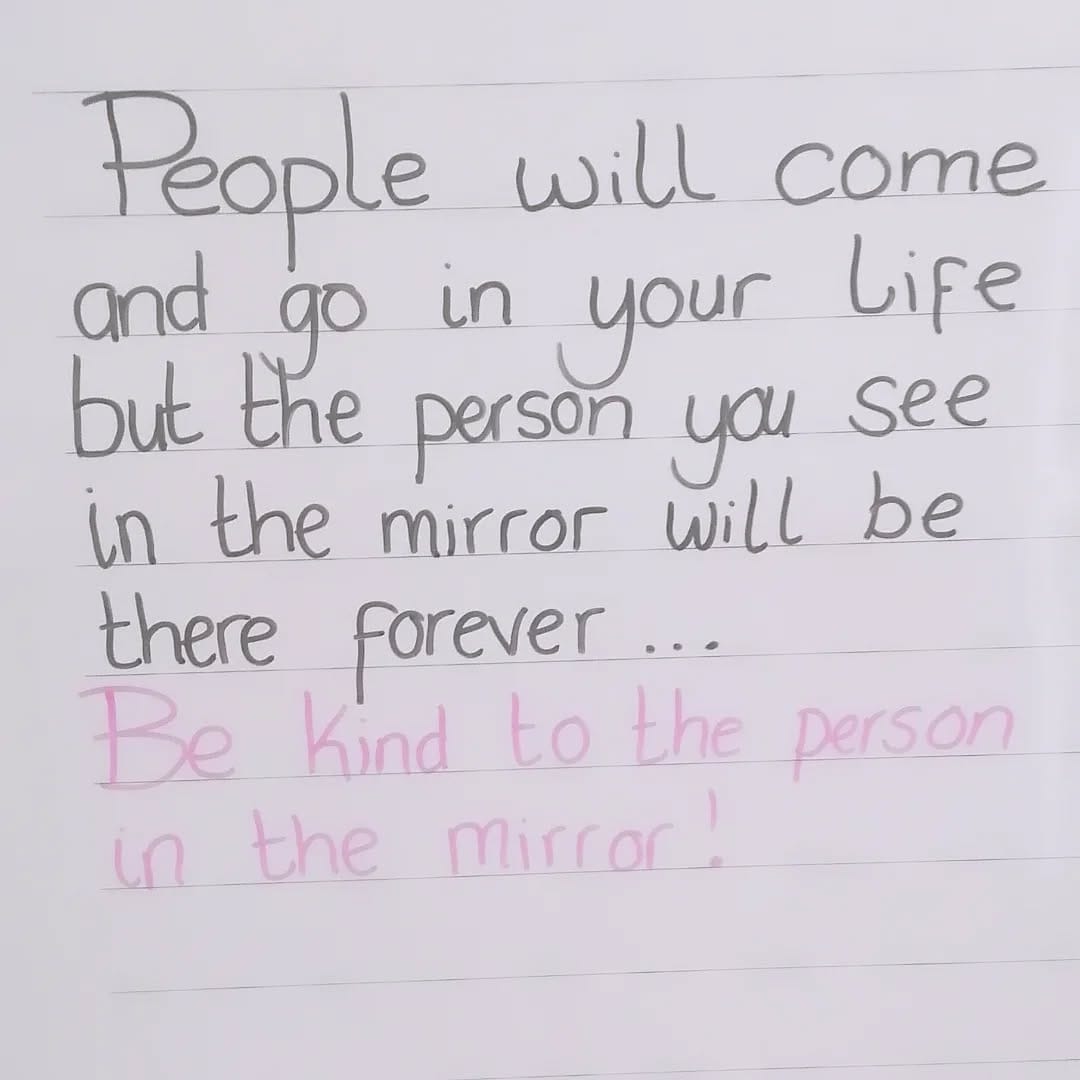 People will come
and go in your life
but the person you see
in the mirror will be
there forever ...
Be kind to the person
in the mirror!